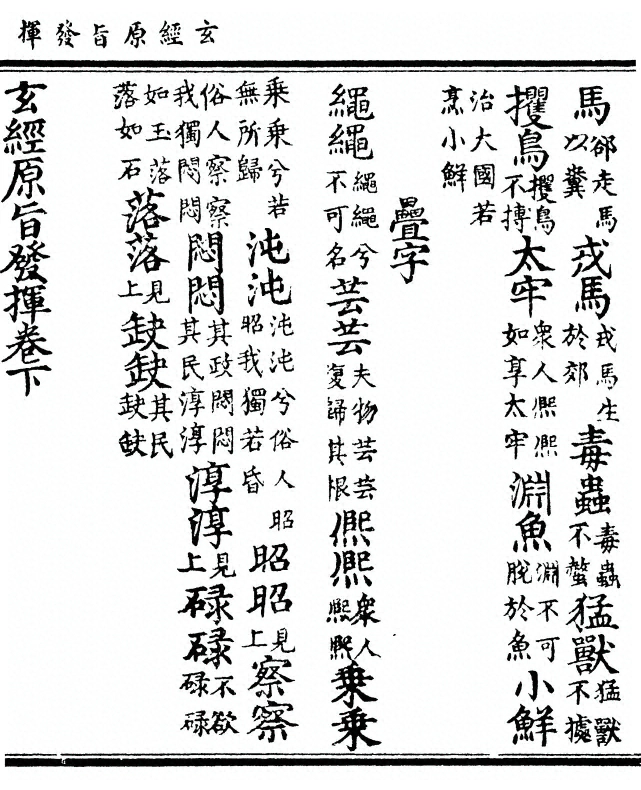 玄經原旨發揮
馬郤走馬以糞戎馬戎馬生於郊毒蟲毒蟲不螫猛獸猛獸不據
攫鳥攫鳥不搏太牢衆人熈熈如享太牢淵魚淵不可脫於魚小鮮
治大國若烹小鮮
疊字
繩繩繩繩兮不可名芸芸夫物芸芸復歸其根熈熈衆人熈熈乗乗
乗乗兮若無所歸沌沌沌沌兮俗人昭昭我獨若昏昭昭見上察察
俗人察察我獨悶悶悶悶其政悶悶其民淳淳淳淳見上碌碌不欲碌碌
如玉落落如石落落見上缺缺其民缺缺
玄經原旨發揮卷下